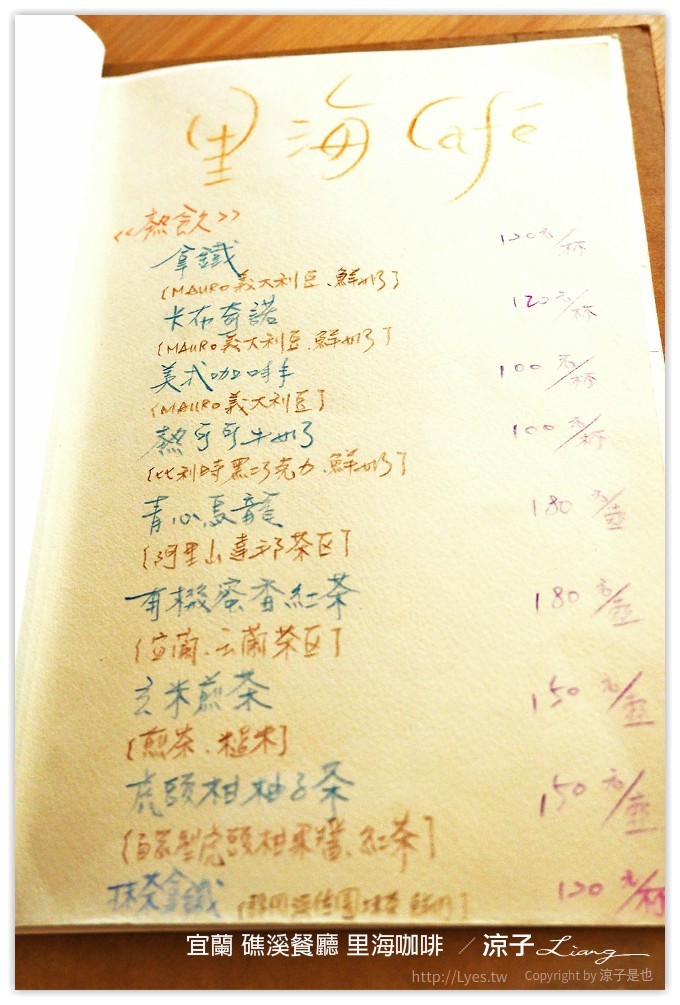 里海 Café
《熱飲》
拿鐵 120元/杯
(MAURO義大利豆、鮮奶)
卡布奇諾 120元/杯
(MAURO義大利豆、鮮奶)
美式咖啡 100元/杯
(MAURO義大利豆)
熱可可牛奶 100元/杯
(比利時黑巧克力、鮮奶)
青心烏龍 180元/壺
(阿里山達邦茶區)
有機蜜香紅茶 180元/壺
(宜蘭、玉蘭茶區)
玄米煎茶 150元/壺
(煎茶、糙米)
虎頭柑柚子茶 150元/壺
虎頭柑果醬、紅茶)
抹茶拿鐵 鮮奶) 120元/杯
宜蘭 礁溪餐廳 里海咖啡 ／涼子Liang
http://Lyes.tw Copyright by 涼子是也